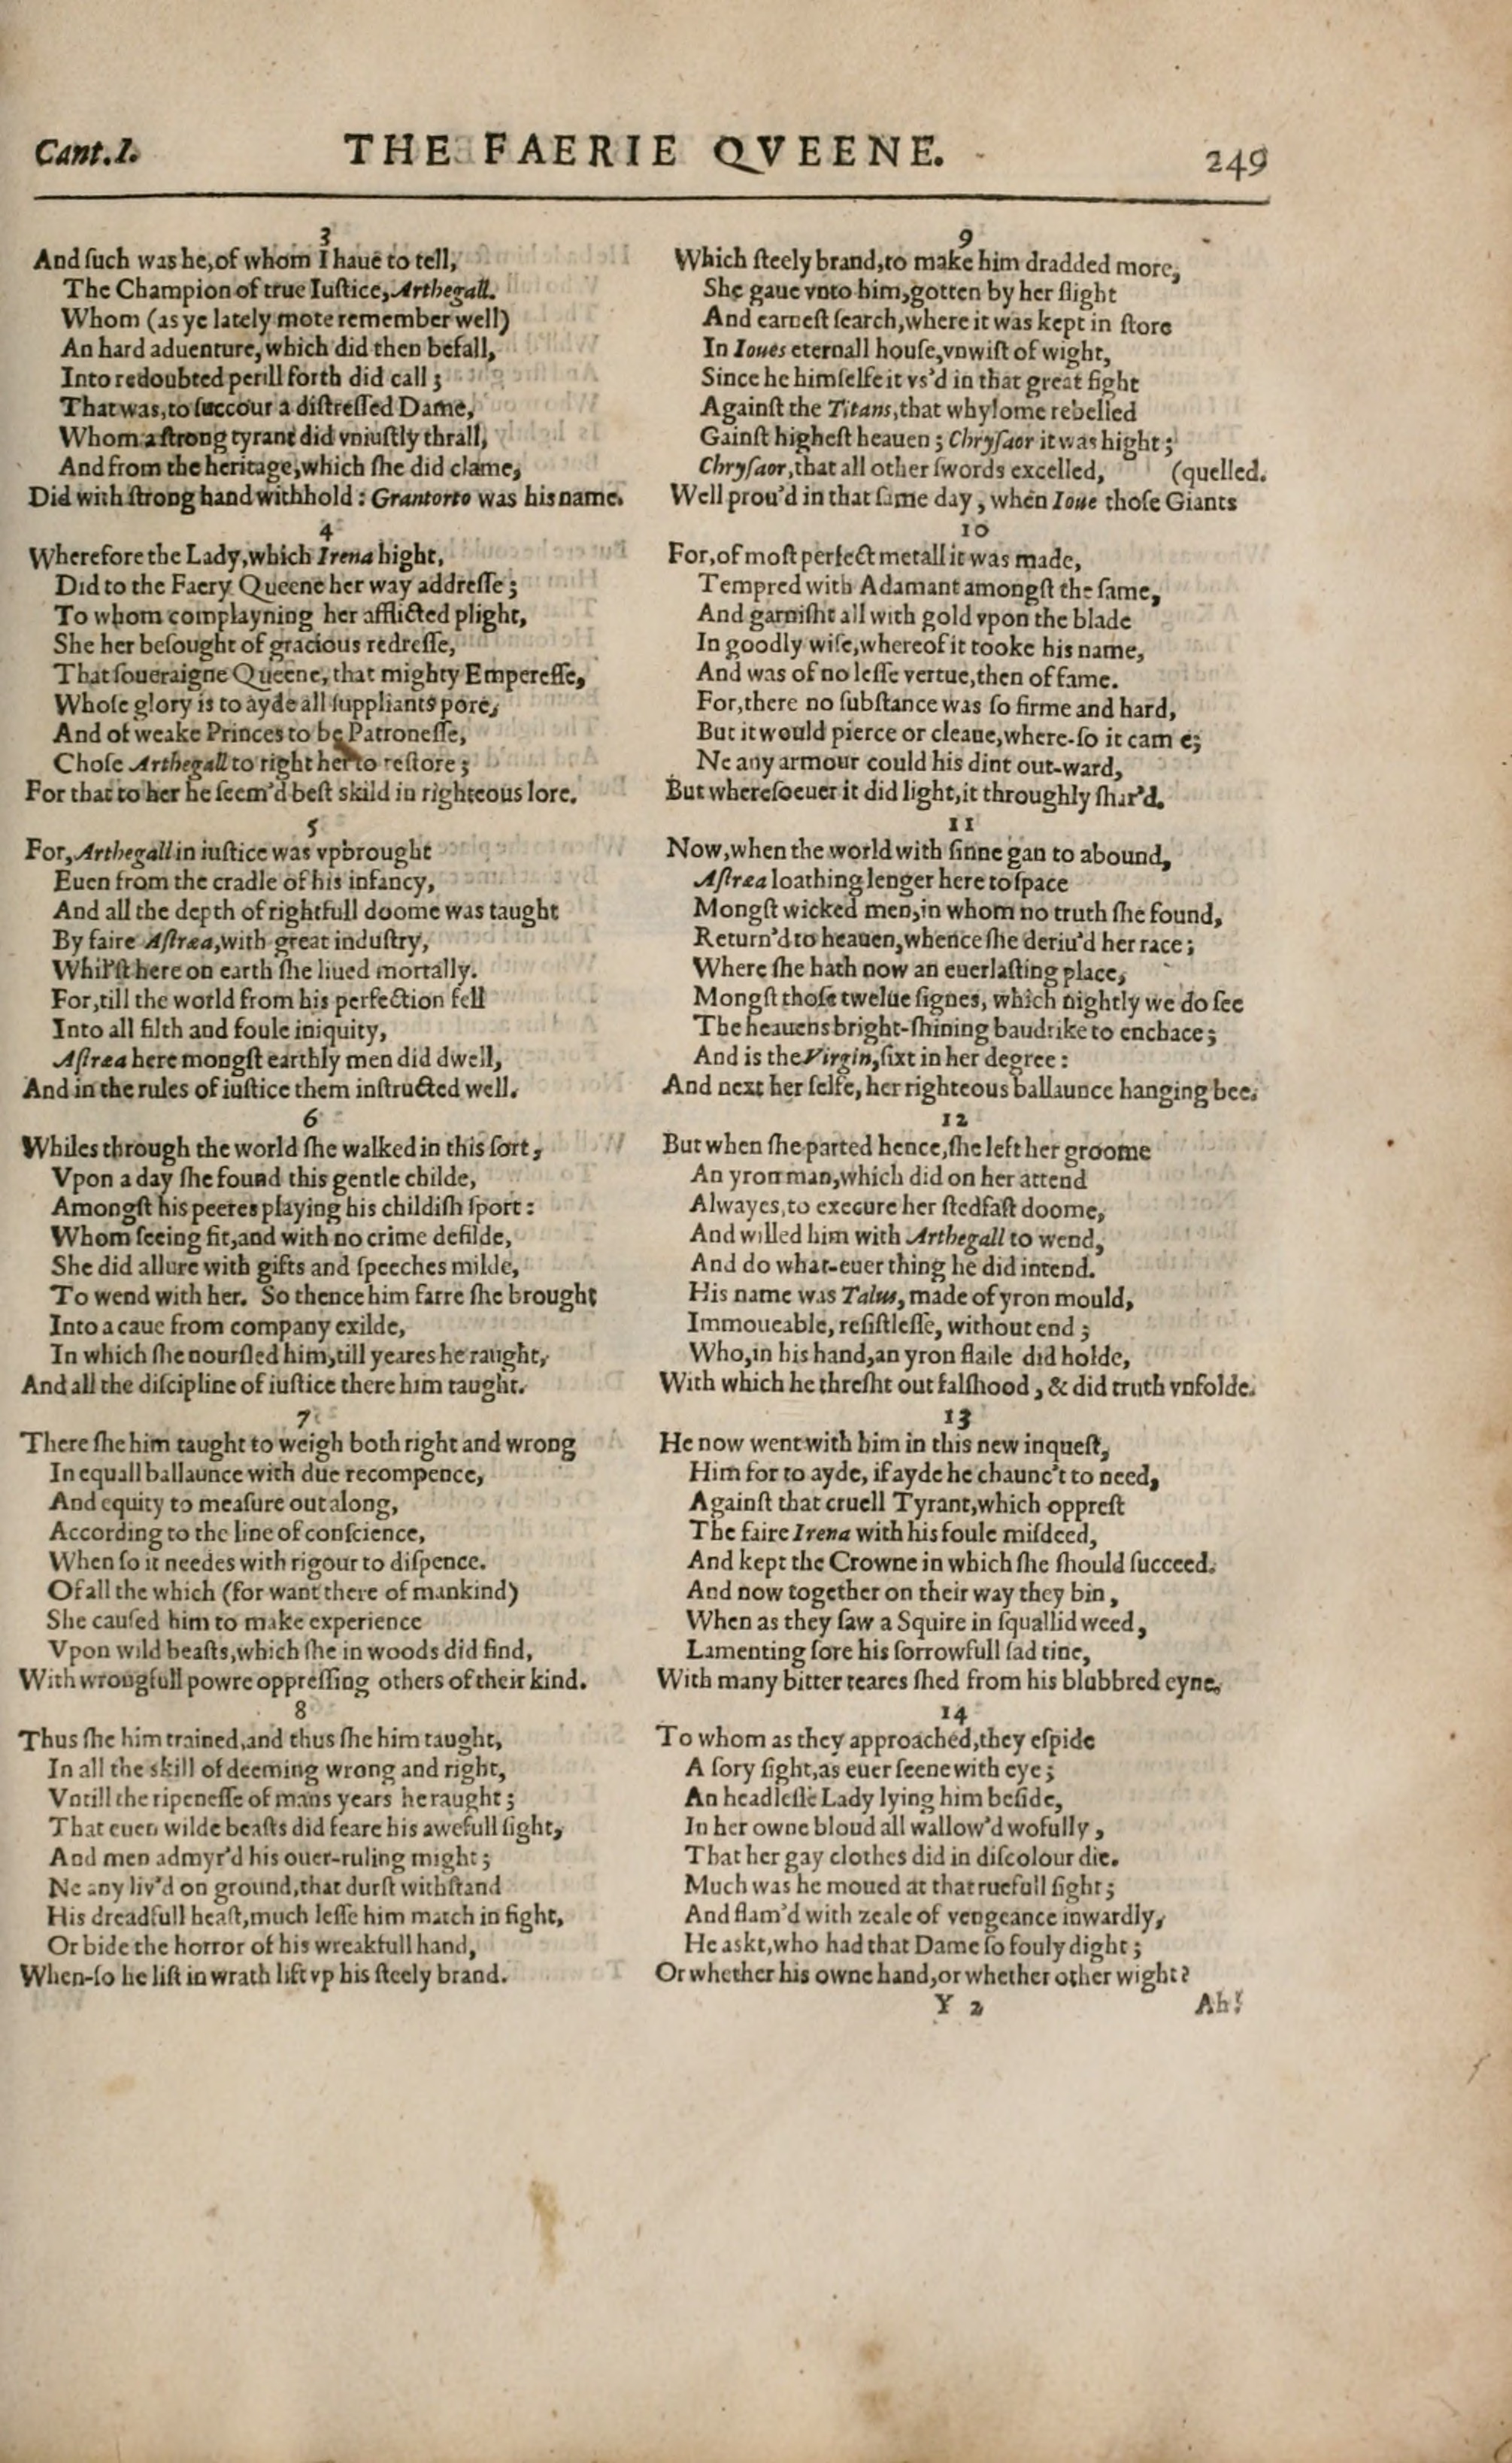 Cant. I.
THE FAERIE QVEENE.
249
3
And ſuch was he, of whom I haue to tell,
The Champion of true Iuſtice, Arthegall.
Whom (as ye lately mote remember well)
An hard aduenture, which did then befall,
Into redoubted perill forth did call;
That was, to ſuccour a diſtreſſed Dame,
Whom a ſtrong tyrant did vniuſtly thrall,
And from the heritage, which ſhe did clame,
Did with ſtrong hand withhold: Grantorto was his name.
4
Wherefore the Lady, which Irena hight,
Did to the Faery Queene her way addreſſe;
To whom complayning her afflicted plight,
She her beſought of gracious redreſſe,
That ſoueraigne Queene, that mighty Empereſſe,
Whoſe glory is to ayde all ſuppliants pore,
And of weake Princes to be Patroneſſe,
Choſe Arthegall to right her to reſtore;
For that to her he ſeem'd beſt skild in righteous lore.
5
For, Arthegall in iuſtice was vpbrought
Euen from the cradle of his infancy,
And all the depth of rightfull doome was taught
By faire Aſtræa, with great induſtry,
Whil'ſt here on earth ſhe liued mortally.
For, till the world from his perfection fell
Into all filth and foule iniquity,
Aſtræa here mongſt earthly men did dwell,
And in the rules of iuſtice them inſtructed well.
6
Whiles through the world ſhe walked in this ſort,
Vpon a day ſhe found this gentle childe,
Amongſt his peeres playing his childiſh ſport:
Whom ſeeing fit, and with no crime defilde,
She did allure with gifts and ſpeeches milde,
To wend with her. So thence him farre ſhe brought
Into a caue from company exilde,
In which ſhe nourſled him, till yeares he raught,
And all the diſcipline of iuſtice there him taught.
7
There ſhe him taught to weigh both right and wrong
In equall ballaunce with due recompence,
And equity to meaſure out along,
According to the line of conſcience,
When ſo it needes with rigour to diſpence.
Of all the which (for want there of mankind)
She cauſed him to make experience
Vpon wild beaſts, which ſhe in woods did find,
With wrongfull powre oppreſſing others of their kind.
8
Thus ſhe him trained, and thus ſhe him taught,
In all the skill of deeming wrong and right,
Vntill the ripeneſſe of mans years he raught;
That euen wilde beaſts did feare his awefull ſight,
And men admyr'd his ouer-ruling might;
Ne any liv'd on ground, that durſt withſtand
His dreadfull heaſt, much leſſe him match in fight,
Or bide the horror of his wreakfull hand,
When-ſo he liſt in wrath lift vp his ſteely brand.
9
Which ſteely brand, to make him dradded more,
She gaue vnto him, gotten by her ſlight
And earneſt ſearch, where it was kept in ſtore
In Ioues eternall houſe, vnwiſt of wight,
Since he himſelfe it vs'd in that great fight
Againſt the Titans, that whylome rebelled
Gainſt higheſt heauen; Chryſaor it was hight;
Chryſaor, that all other ſwords excelled, (quelled.
Well prou'd in that ſame day, when Ioue thoſe Giants
10
For, of moſt perfect metall it was made,
Tempred with Adamant amongſt the ſame,
And garniſht all with gold vpon the blade
In goodly wiſe, whereof it tooke his name,
And was of no leſſe vertue, then of fame.
For, there no ſubſtance was ſo firme and hard,
But it would pierce or cleaue, where-ſo it cam e;
Ne any armour could his dint out-ward,
But whereſoeuer it did light, it throughly ſhar'd.
11
Now, when the world with ſinne gan to abound,
Aſtræa loathing lenger here to ſpace
Mongſt wicked men, in whom no truth ſhe found,
Return'd to heauen, whence ſhe deriu'd her race;
Where ſhe hath now an euerlaſting place,
Mongſt thoſe twelue ſignes, which nightly we do ſee
The heauens bright-ſhining baudrike to enchace;
And is the Virgin, ſixt in her degree:
And next her ſelfe, her righteous ballaunce hanging bee.
12
But when ſhe parted hence, ſhe left her groome
An yron man, which did on her attend
Alwayes, to execute her ſtedfaſt doome,
And willed him with Arthegall to wend,
And do what-euer thing he did intend.
His name was Talus, made of yron mould,
Immoueable, reſiſtleſſe, without end;
Who, in his hand, an yron flaile did holde,
With which he threſht out falſhood, & did truth vnfolde.
13
He now went with him in this new inqueſt,
Him for to ayde, if ayde he chaunc't to need,
Againſt that cruell Tyrant, which oppreſt
The faire Irena with his foule miſdeed,
And kept the Crowne in which ſhe ſhould ſucceed.
And now together on their way they bin,
When as they ſaw a Squire in ſquallid weed,
Lamenting ſore his ſorrowfull ſad tine,
With many bitter teares ſhed from his blubbred eyne.
14
To whom as they approached, they eſpide
A ſory ſight, as euer ſeene with eye;
An headleſſe Lady lying him beſide,
In her owne bloud all wallow'd wofully,
That her gay clothes did in diſcolour die.
Much was he moued at that ruefull ſight;
And flam'd with zeale of vengeance inwardly,
He askt, who had that Dame ſo fouly dight;
Or whether his owne hand, or whether other wight?
Y 2
Ah!